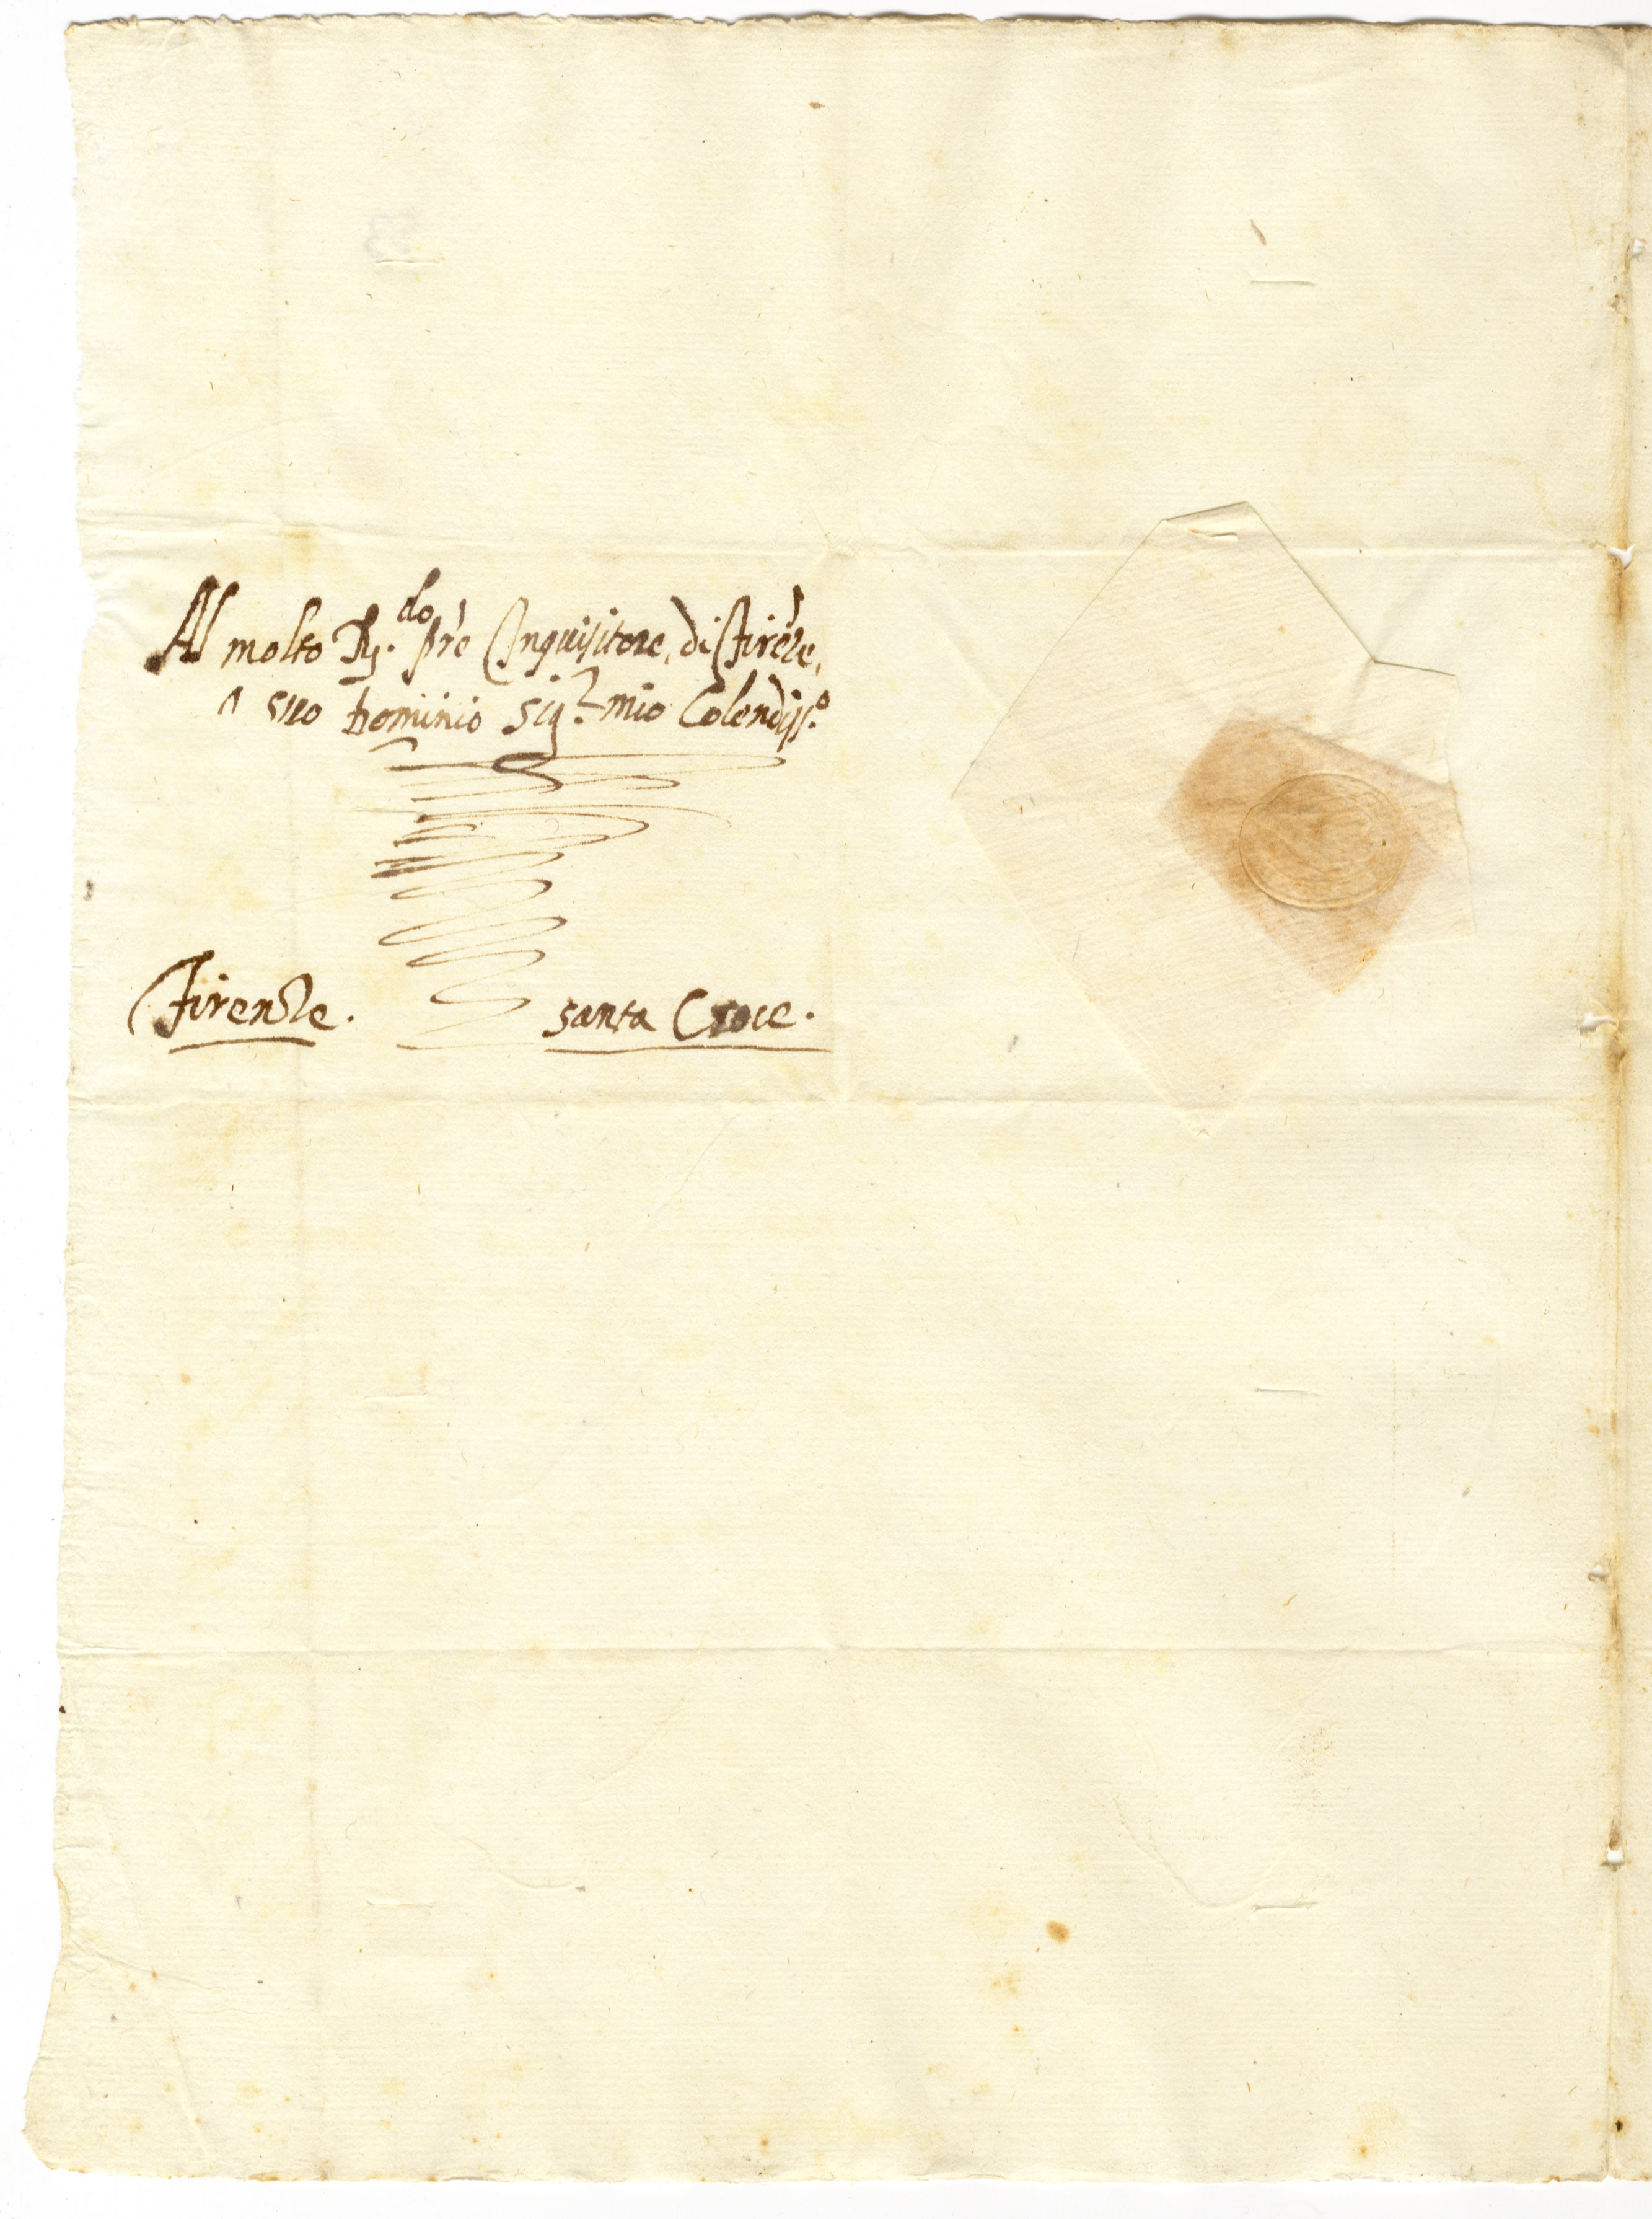 Al molto R.do pre Inquisitore, di Firēze,
e suo dominio Sig.r mio Colendiss.o
Firenze. santa Croce.